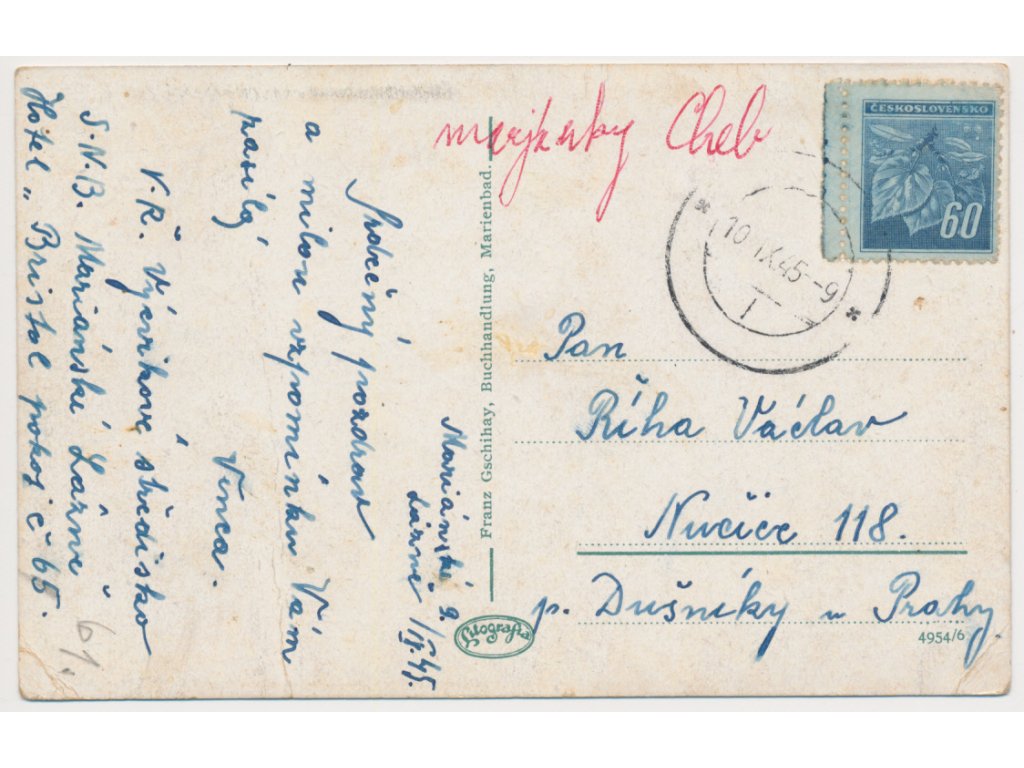 Mariánské
Lázně 9./IX.45.
Srdečný pozdrav
a milou vzpomínku Vám
zasílá
Vinca.
V.R. Výcvikové středisko
S.N.B. Mariánské Lázně
Hotel „Bristol pokoj č 65.
61.
Franz Gschihay, Buchhandlung, Marienbad.
Litografia
Cheb
ČESKOSLOVENSKO
60
10.IX.45-9
1
Pan
Říha Václav
Nučice 118.
p. Dušníky u Prahy
4954/6